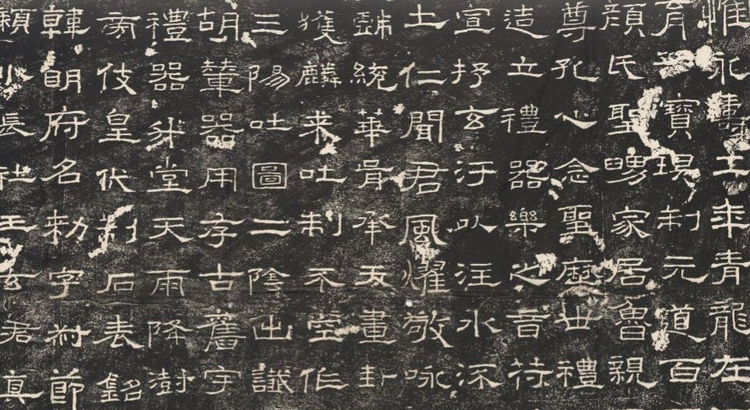 惟永壽二年青龍在
育空寶俱制元道百
顏氏聖舅家居魯親
尊孔心念聖歷世禮
造立禮器樂之音苻
宣抒玄汙以注水流
士仁聞君風燿敬咏
戲統華胥承天畫卦
獲麟來吐制不空作
三陽吐圖二陰出讖
胡輦器用存古舊宇
禮器升堂天雨降澍
旁伎皇代刊石表銘
韓明府名勑字叔節
潁川長社王玄君真